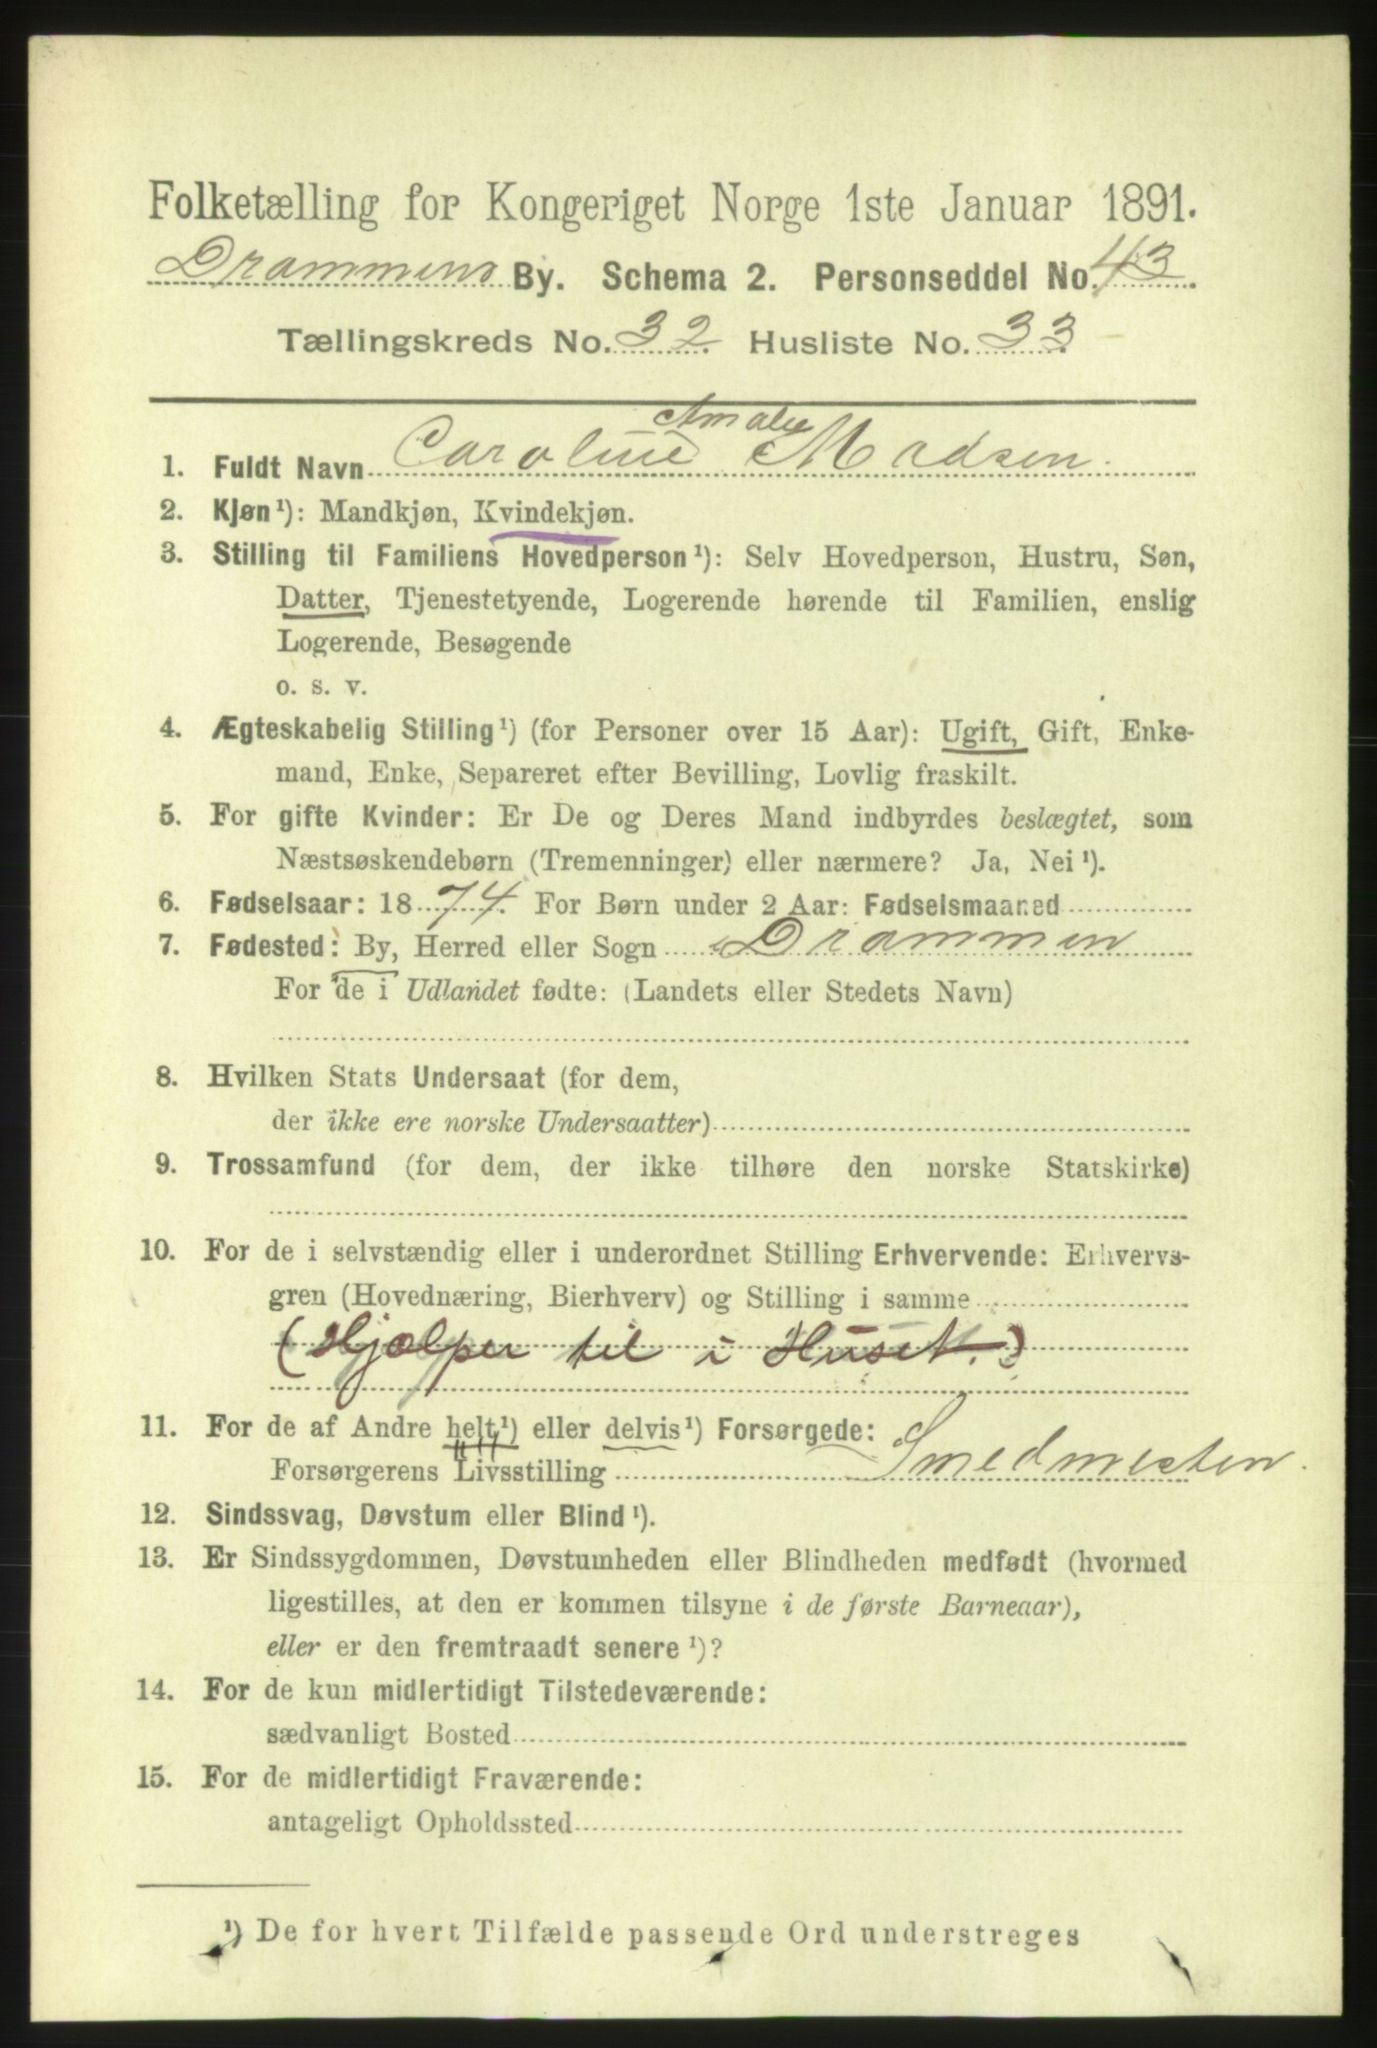 Folketælling for Kongeriget Norge 1ste Januar 1891.
Drammens By. Schema 2. Personseddel No. 43.
Tællingskreds No. 32. Husliste No. 33.
Amalie
1. Fuldt Navn Caroline Madsen.
2. Kjøn¹): Mandkjøn, Kvindekjøn.
3. Stilling til Familiens Hovedperson¹): Selv Hovedperson, Hustru, Søn,
Datter, Tjenestetyende, Logerende hørende til Familien, enslig
Logerende, Besøgende
o. s. v.
4. Ægteskabelig Stilling¹) (for Personer over 15 Aar): Ugift, Gift, Enke-
mand, Enke, Separeret efter Bevilling, Lovlig fraskilt.
5. For gifte Kvinder: Er De og Deres Mand indbyrdes beslægtet, som
Næstsøskendebørn (Tremenninger) eller nærmere? Ja, Nei¹).
6. Fødselsaar: 1874. For Børn under 2 Aar: Fødselsmaaned
7. Fødested: By, Herred eller Sogn Drammen
For de i Udlandet fødte: (Landets eller Stedets Navn)
8. Hvilken Stats Undersaat (for dem,
der ikke ere norske Undersaatter)
9. Trossamfund (for dem, der ikke tilhøre den norske Statskirke)
10. For de i selvstændig eller i underordnet Stilling Erhvervende: Erhvervs-
gren (Hovednæring, Bierhverv) og Stilling i samme
(Hjælper til i Huset.)
11. For de af Andre helt¹) eller delvis¹) Forsørgede:
Forsørgerens Livsstilling Smedmester.
12. Sindssvag, Døvstum eller Blind¹).
13. Er Sindssygdommen, Døvstumheden eller Blindheden medfødt (hvormed
ligestilles, at den er kommen tilsyne i de første Barneaar),
eller er den fremtraadt senere¹)?
14. For de kun midlertidigt Tilstedeværende:
sædvanligt Bosted
15. For de midlertidigt Fraværende:
antageligt Opholdssted
¹) De for hvert Tilfælde passende Ord understreges